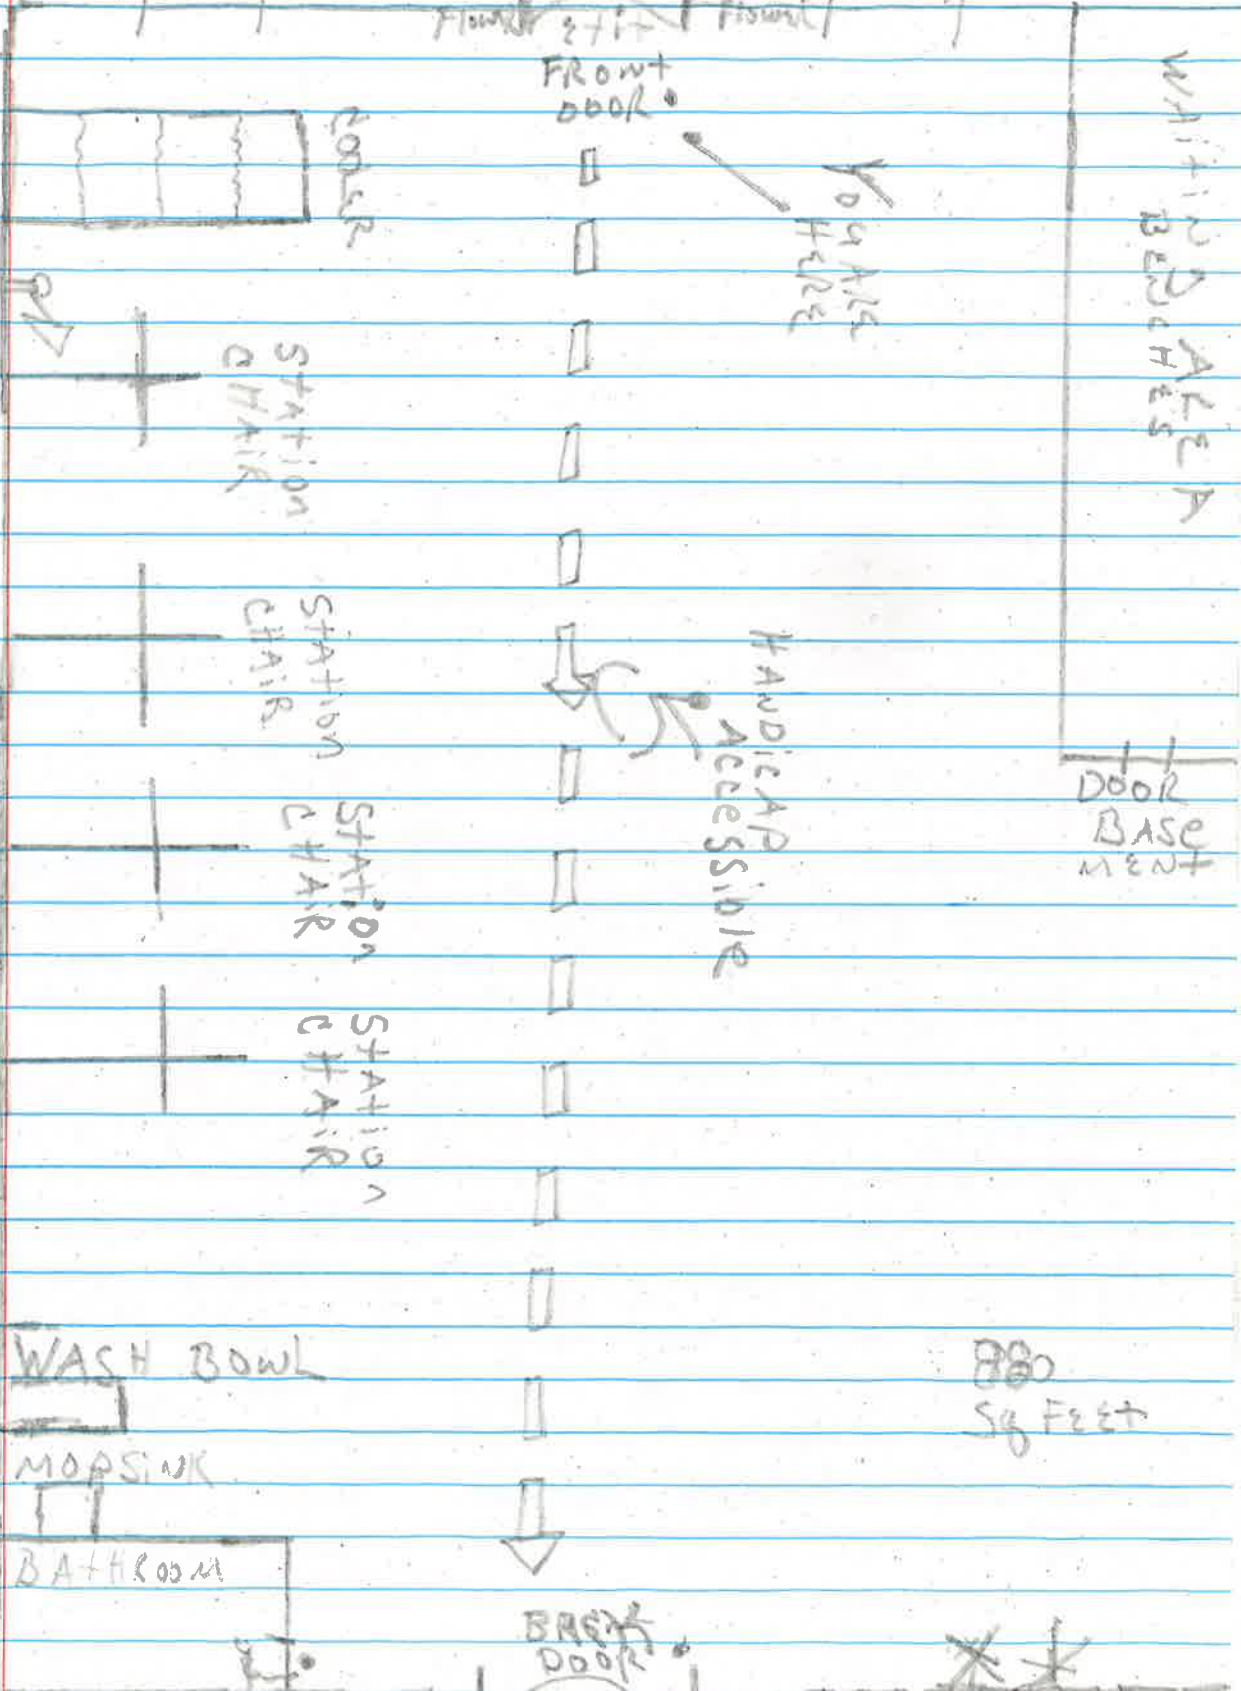 Flower Exit Flower
FRONT
DOOR
COOLER
YOU ARE
HERE
WAiTiNG AREA
BENCHES
STATion
CHAiR
STATion
CHAiR
HANDiCAP
ACCeSSible
DOOR
BASe
MENT
STATion
CHAiR
STATion
CHAiR
WASH BOWL
Sq FEET
MOPSiNK
BATHROOM
BACK
DOOR